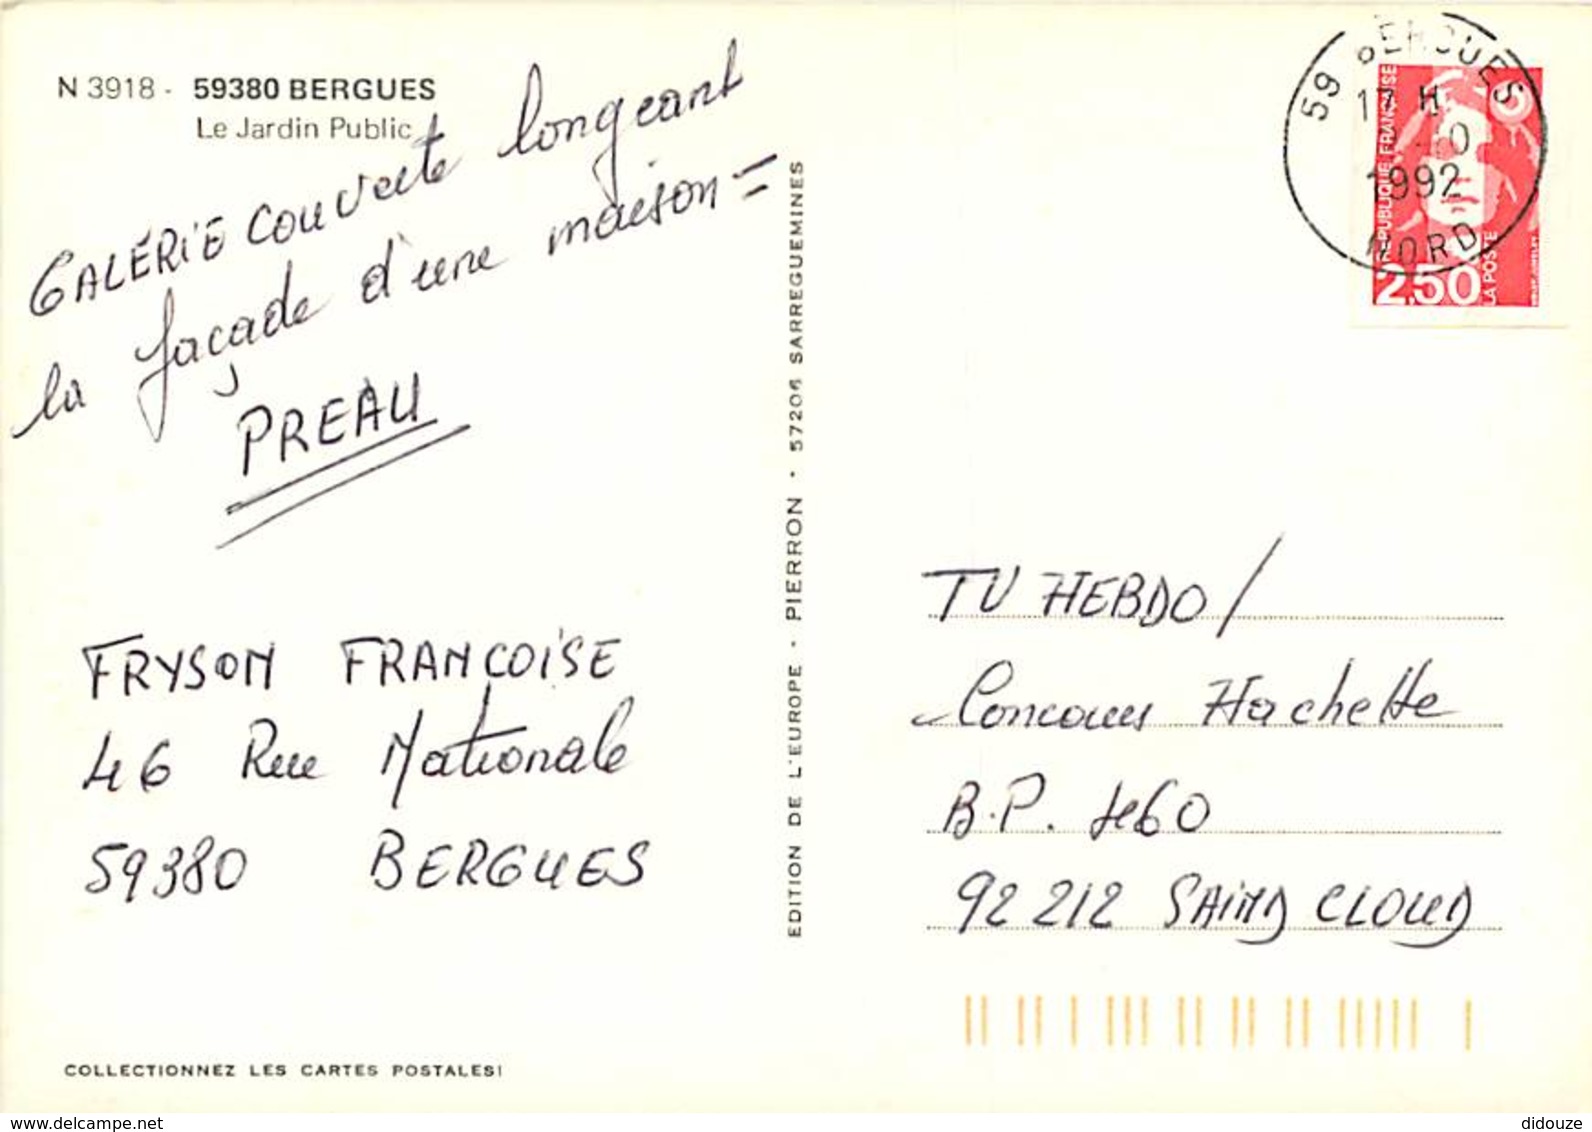 N 3918 - 59380 BERGUES
Le Jardin Public
GALERIE couverte longeant
la façade d'une maison =
PREAU
FRYSON FRANCOISE
46 Rue Nationale
59380 BERGUES
COLLECTIONNEZ LES CARTES POSTALES!
EDITION DE L'EUROPE - PIERRON - 57206 SARREGUEMINES
59 BERGUES
17 H
1992
NORD
REPUBLIQUE FRANÇAISE
2,50
LA POSTE
TV HEBDO/
Concours Hachette
B.P. 460
92212 SAINT CLOUD
delcampe.net
didouze